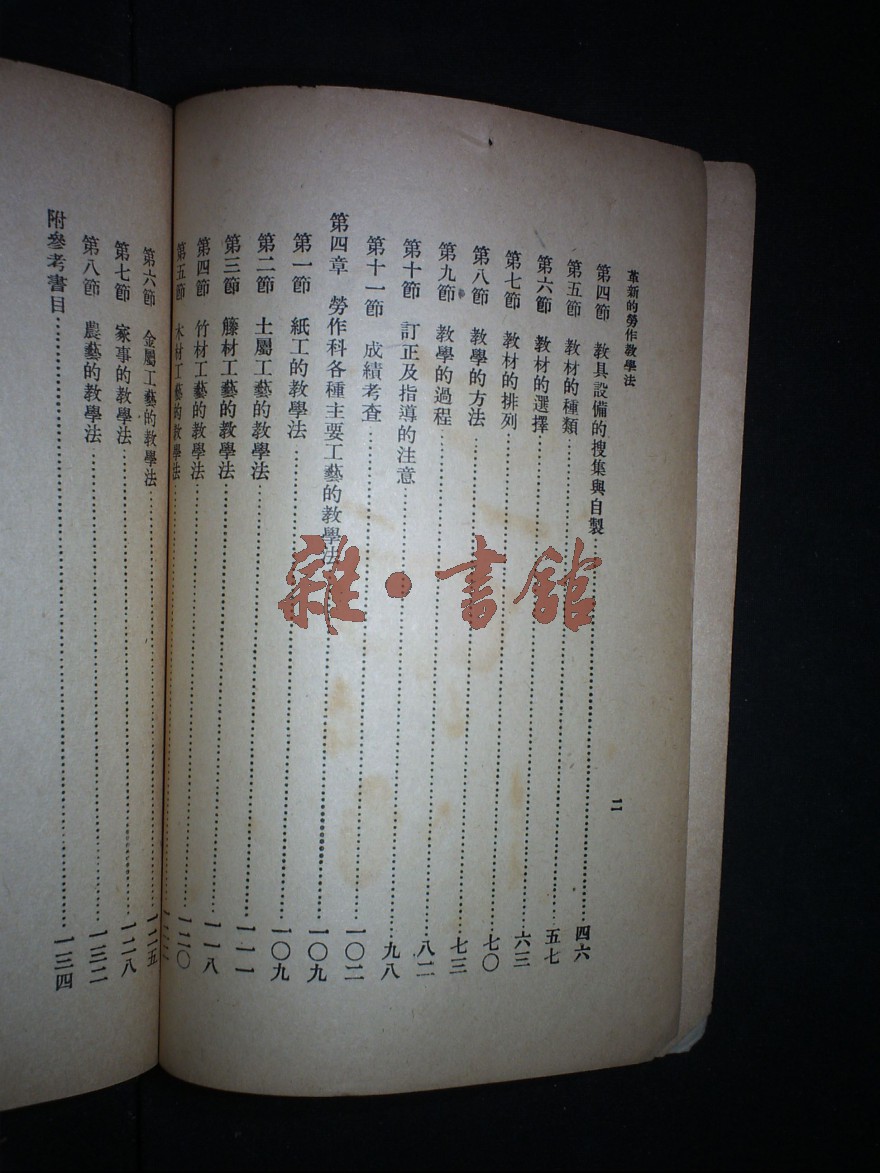 革新的勞作教學法
二
第四節 教具設備的搜集與自製……四六
第五節 教材的種類……五七
第六節 教材的選擇……六三
第七節 教材的排列……七〇
第八節 教學的方法……七三
第九節 教學的過程……八二
第十節 訂正及指導的注意……九八
第十一節 成績考查……一〇二
第四章 勞作科各種主要工藝的教學法……一〇九
第一節 紙工的教學法……一〇九
第二節 土屬工藝的教學法……一一一
第三節 籐材工藝的教學法……一一八
第四節 竹材工藝的教學法……一二〇
第五節 木材工藝的教學法……
第六節 金屬工藝的教學法……一二五
第七節 家事的教學法……一二八
第八節 農藝的教學法……一三二
附參考書目……一三四
雜·書館